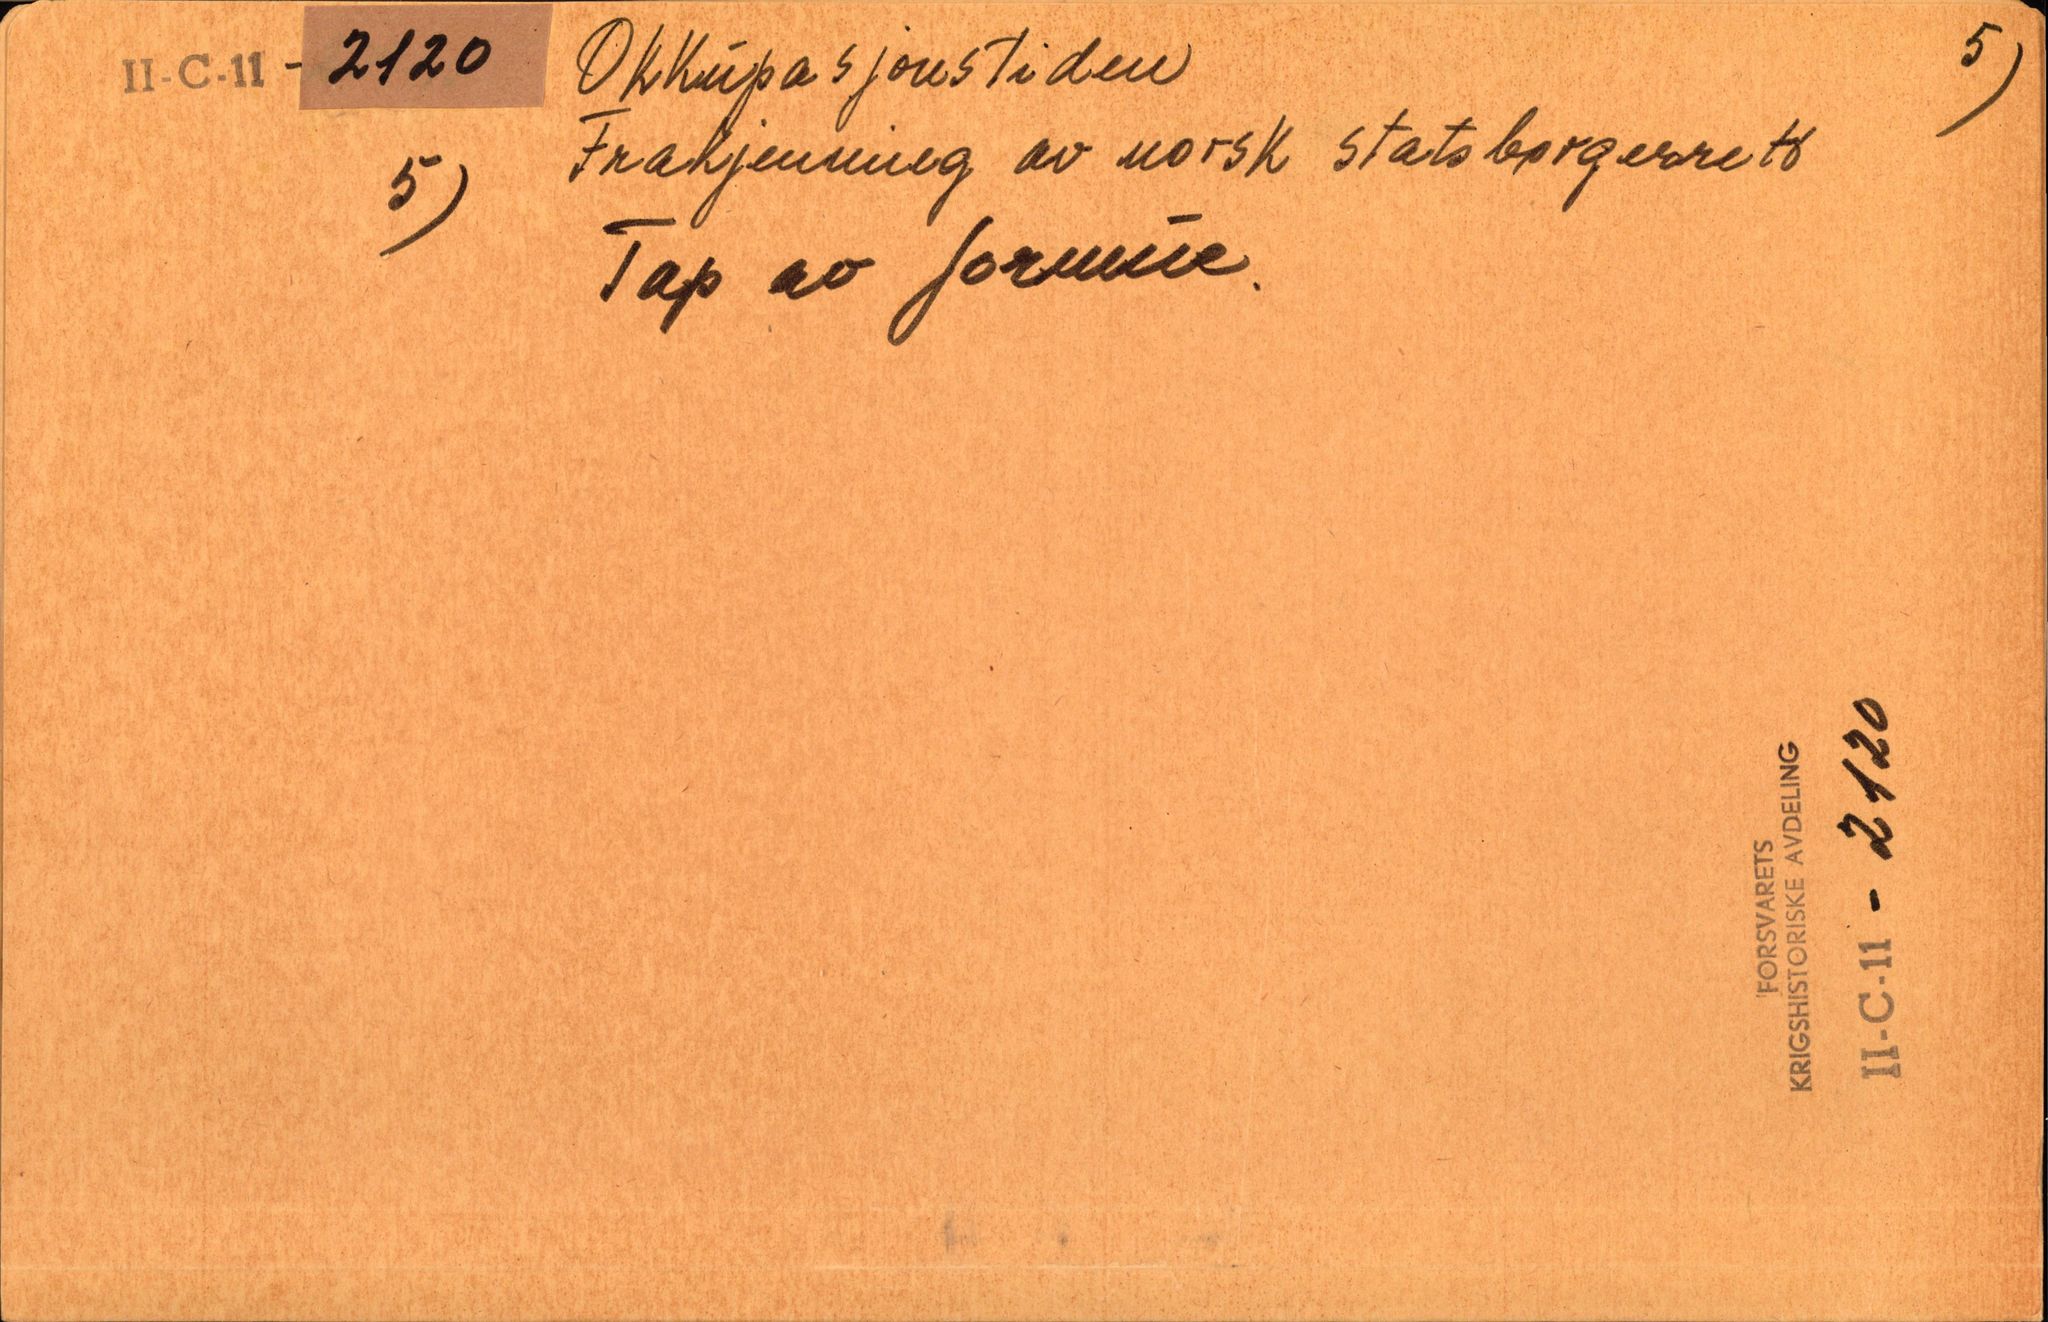 II-C-11 - 2120
Okkupasjonstiden
5)
5) Frakjenning av norsk statsborgerrett
Tap av formue.
FORSVARETS
KRIGSHISTORISKE AVDELING
II-C-11 - 2120